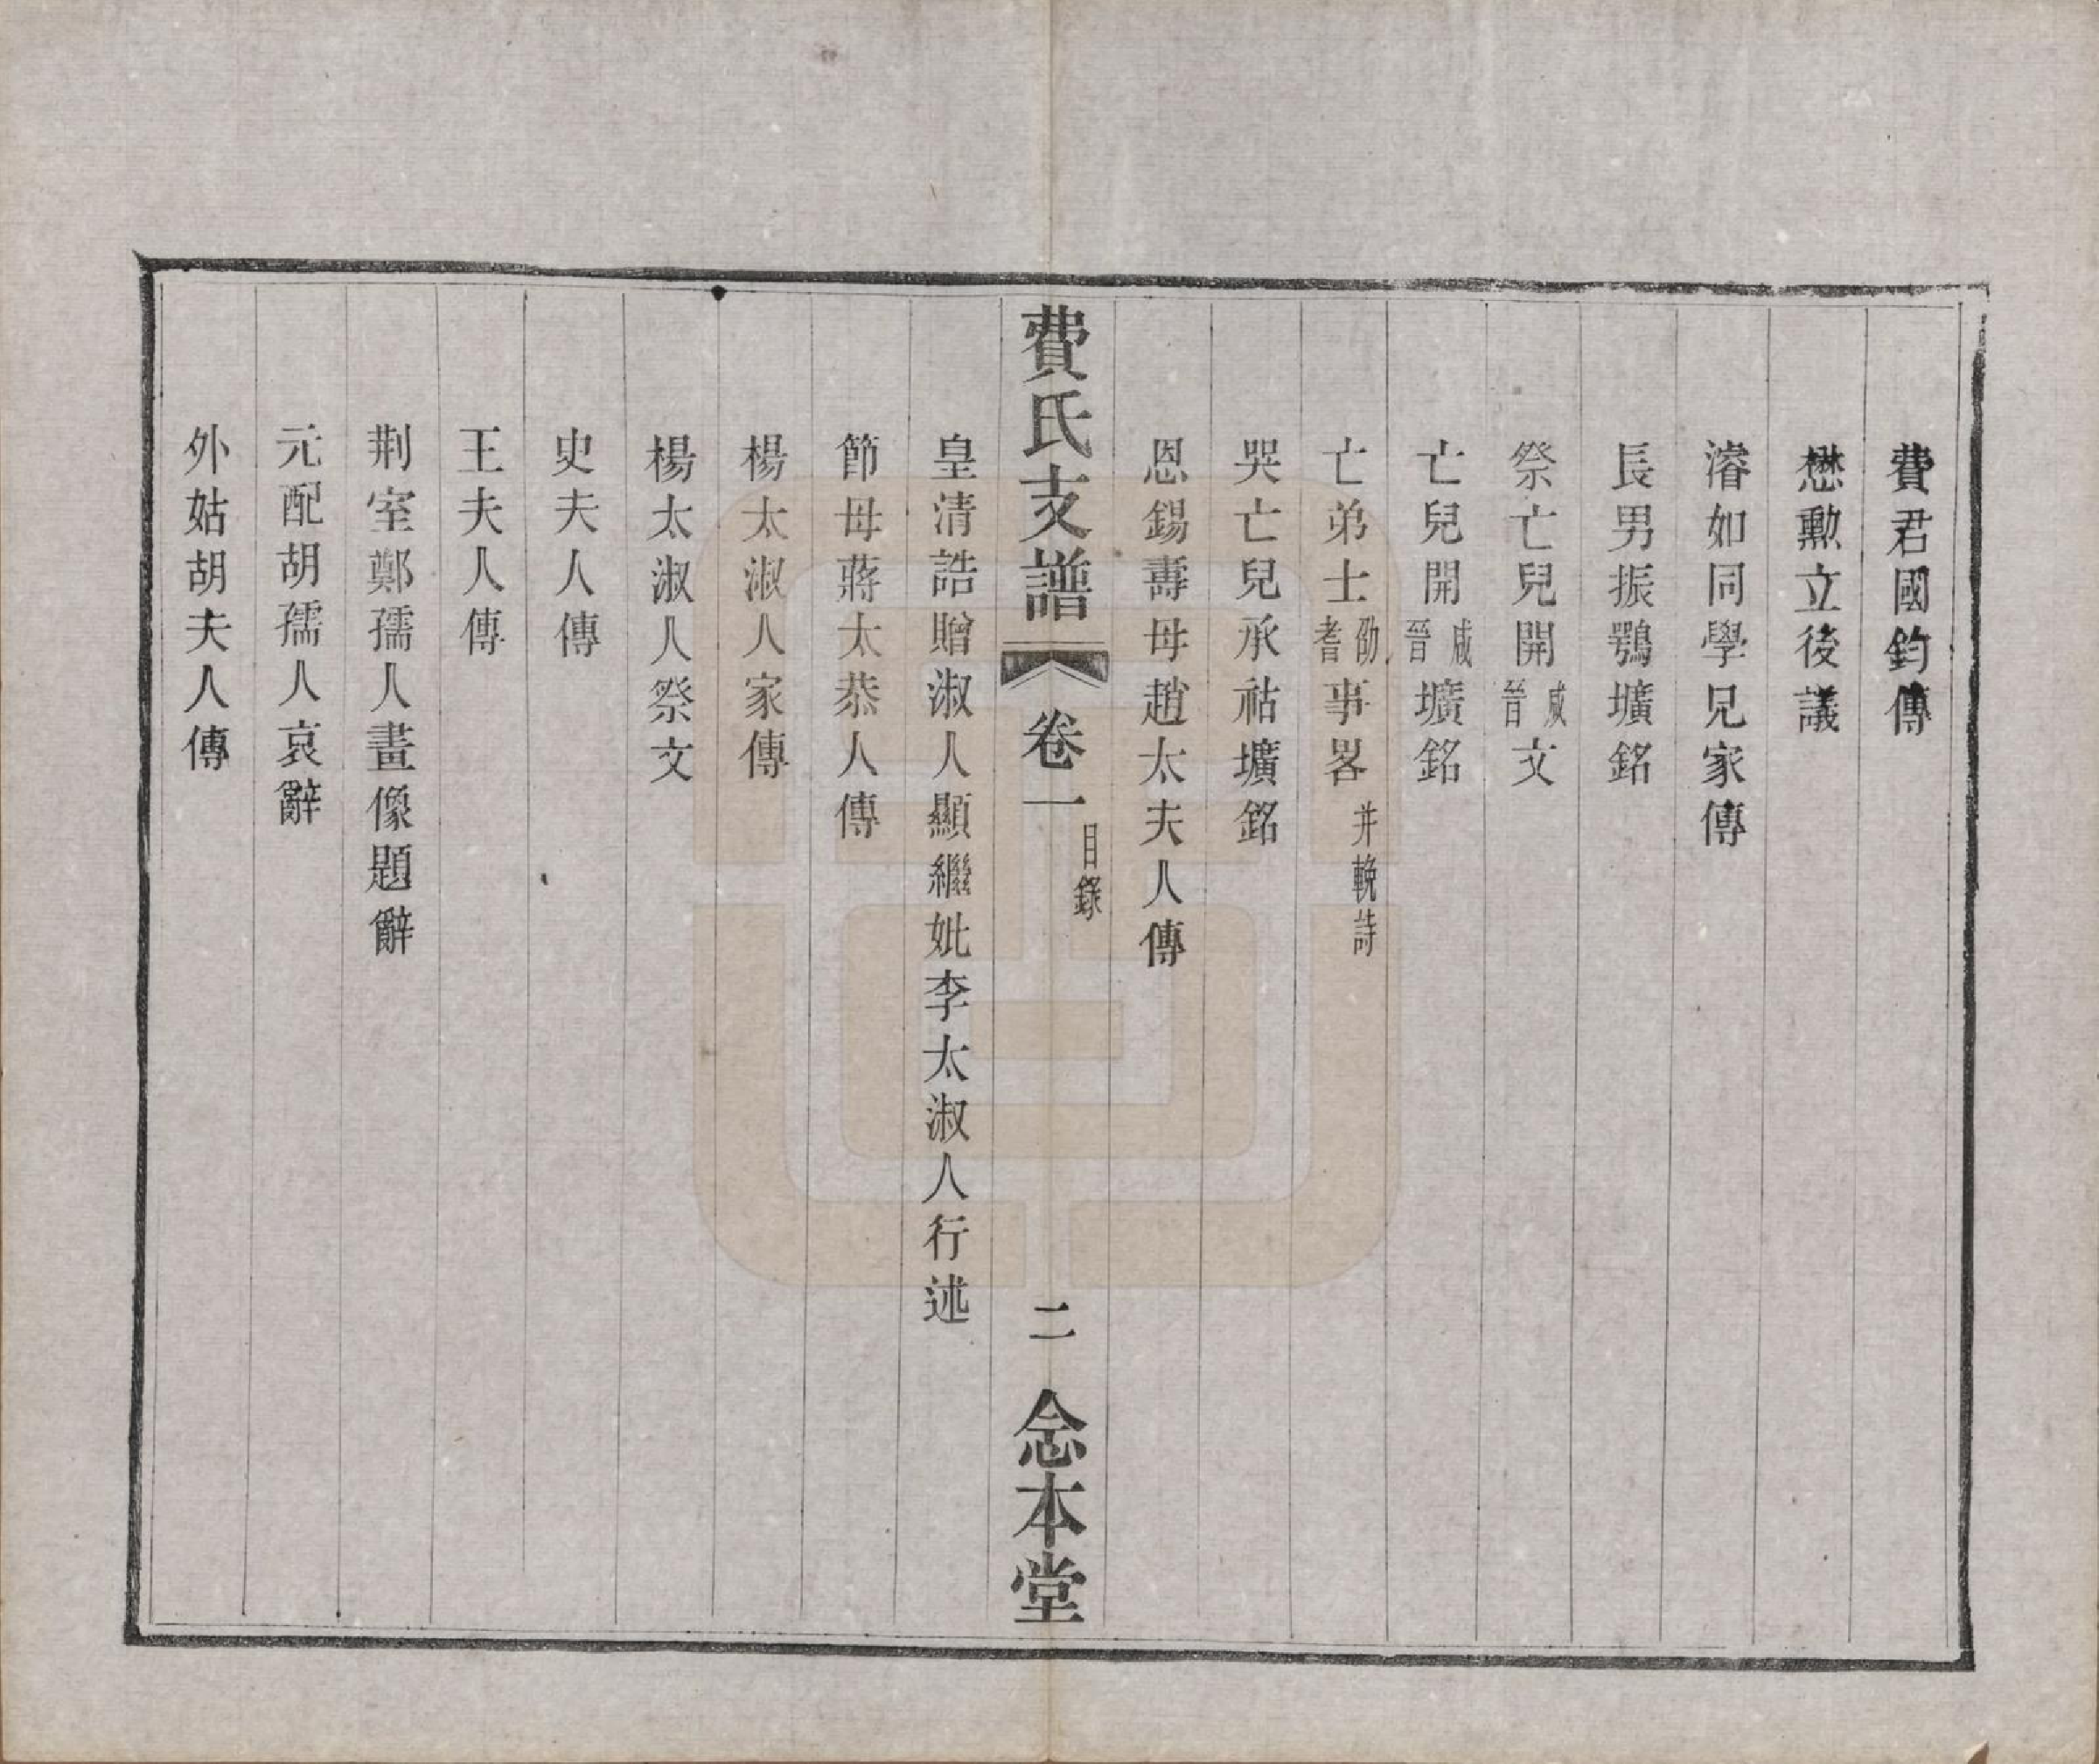 費君國鈞傳
懋勲立後議
濬如同學兄家傳
長男振鶚壙銘
祭亡兒開咸晉文
亡兒開咸晉壙銘
亡弟士劭耆事畧并輓詩
哭亡兒承祜壙銘
恩錫壽母趙太夫人傳
費氏支譜 卷一 目錄 二 念本堂
皇清誥贈淑人顯繼妣李太淑人行述
節母蔣太恭人傳
楊太淑人家傳
楊太淑人祭文
史夫人傳
王夫人傳
荆室鄭孺人畫像題辭
元配胡孺人哀辭
外姑胡夫人傳